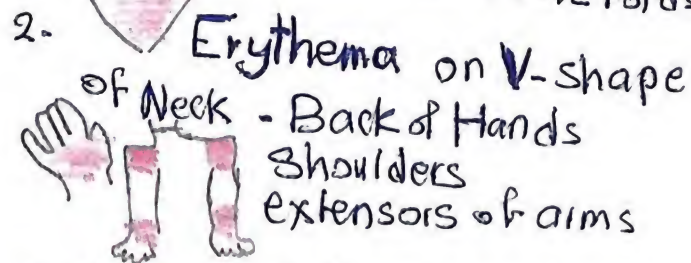 2.
Erythema on V-shape
of Neck - Back of Hands
Shoulders
extensors of arms